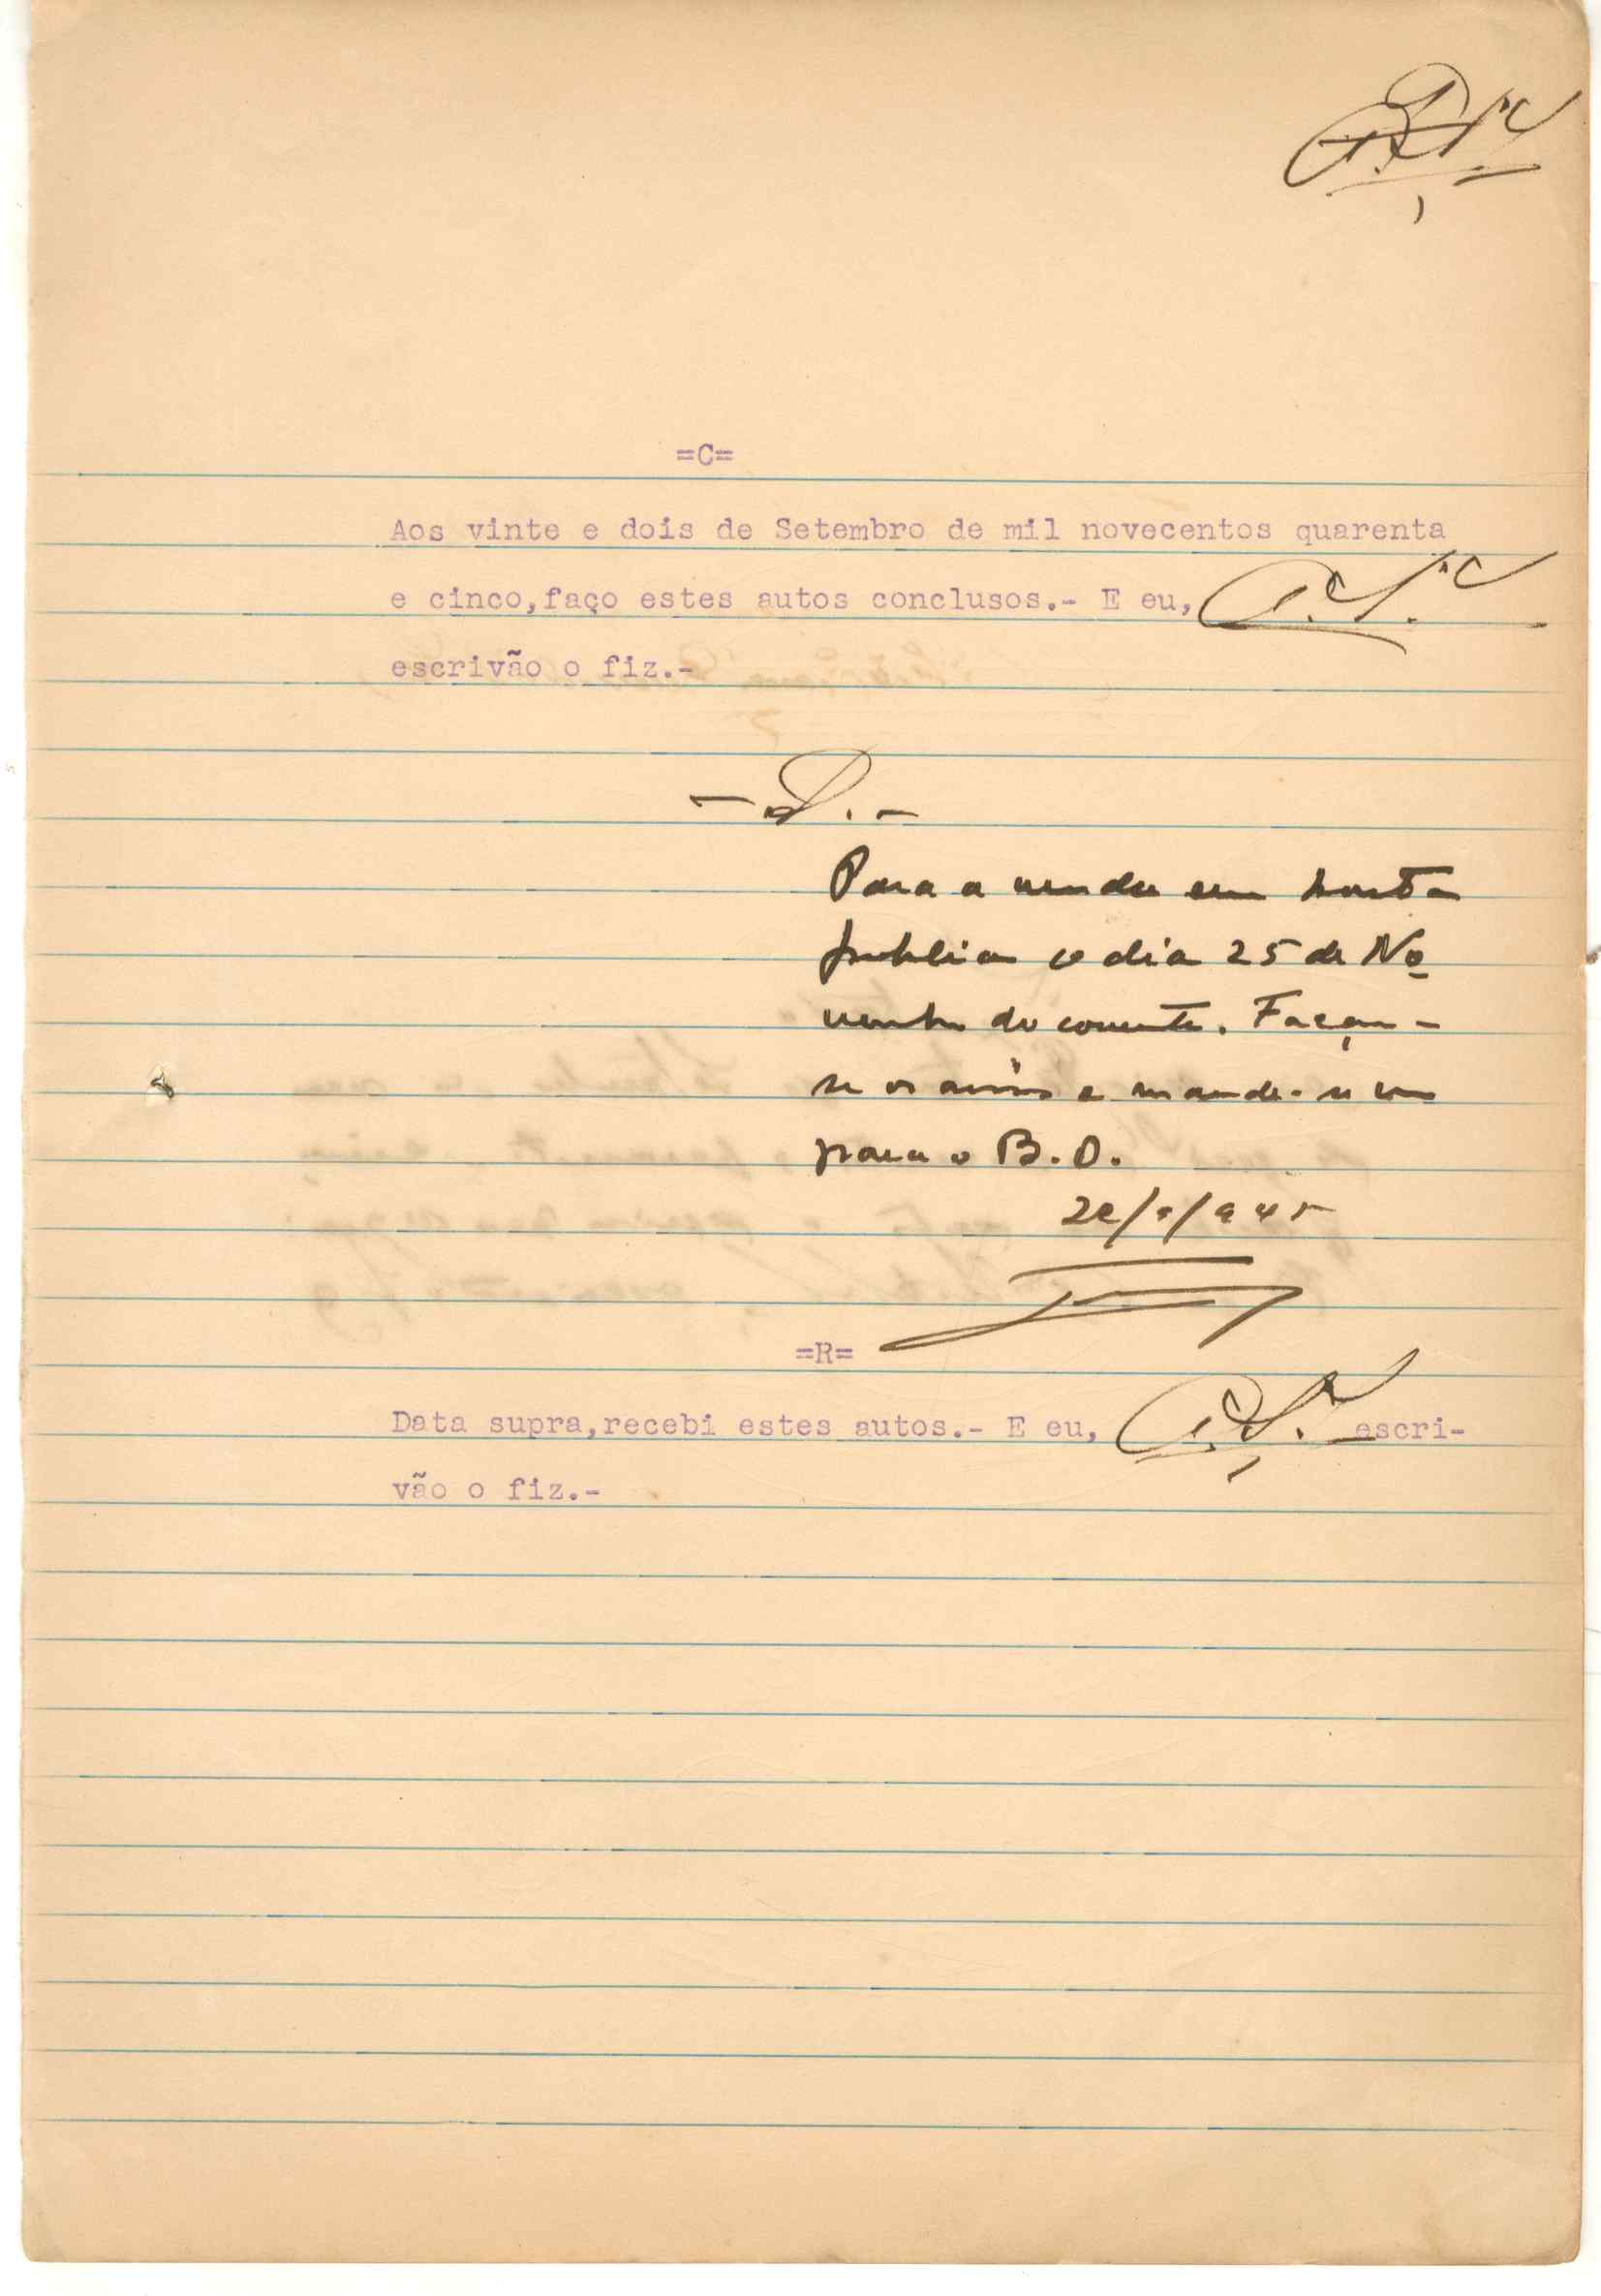 =C=
Aos vinte e dois de Setembro de mil novecentos quarenta
e cinco,faço estes autos conclusos.- E eu,
escrivão o fiz.-
- D. -
Para a venda em hasta
publica o dia 25 de No
vembro do corrente. Façam-
se os avisos e mande-se um
para o B. O.
22/9/945
=R=
Data supra,recebi estes autos.- E eu, escri-
vão o fiz.-